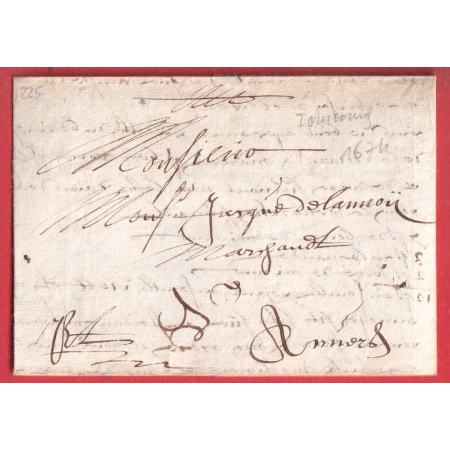 225
1674
Monsieur
Mons.r Jacque delannoÿ
Marchandt
Anvers